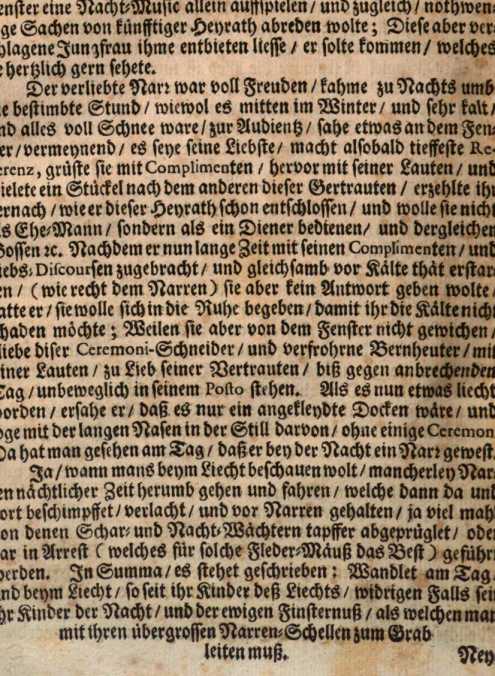 enster eine Nacht-Music allein auffspielen / und zugleich / nothwen-
ge Sachen von künfftiger Heyrath abreden wolte; Diese aber ver-
hlagene Jungfrau ihme entbieten liesse / er solte kommen / welches
e hertzlich gern sehete.
Der verliebte Narr war voll Freuden / kahme zu Nachts umb
ie bestimbte Stund / wiewol es mitten im Winter / und sehr kalt /
nd alles voll Schnee ware / zur Audientz / sahe etwas an dem Fen-
er / vermeynend / es seye seine Liebste / macht alsobald tieffeste Re-
erenz, grüste sie mit Complimenten / hervor mit seiner Lauten / und
pielete ein Stückel nach dem anderen dieser Gertrauten / erzehlte ihr
ernach / wie er dieser Heyrath schon entschlossen / und wolle sie nicht
ls Ehe-Mann / sondern als ein Diener bedienen / und dergleichen
Bossen ꝛc. Nachdem er nun lange Zeit mit seinen Complimenten / und
iebs-Discoursen zugebracht / und gleichsamb vor Kälte thät erstar-
en / (wie recht dem Narren) sie aber kein Antwort geben wolte /
atte er / sie wolle sich in die Ruhe begeben / damit ihr die Kälte nicht
chaden möchte; Weilen sie aber von dem Fenster nicht gewichen /
liebe diser Ceremoni-Schneider / und verfrohrne Bernheuter / mit
einer Lauten / zu Lieb seiner Vertrauten / biß gegen anbrechenden
Tag / unbeweglich in seinem Posto stehen. Als es nun etwas liecht
worden / ersahe er / daß es nur ein angekleydte Docken wäre / und
oge mit der langen Nasen in der Still darvon / ohne einige Ceremon
Da hat man gesehen am Tag / daß er bey der Nacht ein Narr gewest.
Ja / wann mans beym Liecht beschauen wolt / mancherley Nar-
en nächtlicher Zeit herumb gehen und fahren / welche dann da und
ort beschimpffet / verlacht / und vor Narren gehalten / ja viel mahl
on denen Schar- und Nacht-Wächtern tapffer abgeprüglet / oder
ar in Arrest (welches für solche Fleder-Mäuß das Best) geführt
werden. In Summa / es stehet geschrieben: Wandlet am Tag /
nd beym Liecht / so seit ihr Kinder deß Liechts / widrigen Falls seit
hr Kinder der Nacht / und der ewigen Finsternuß / als welchen man
mit ihren übergrossen Narren-Schellen zum Grab
leiten muß.
Ney